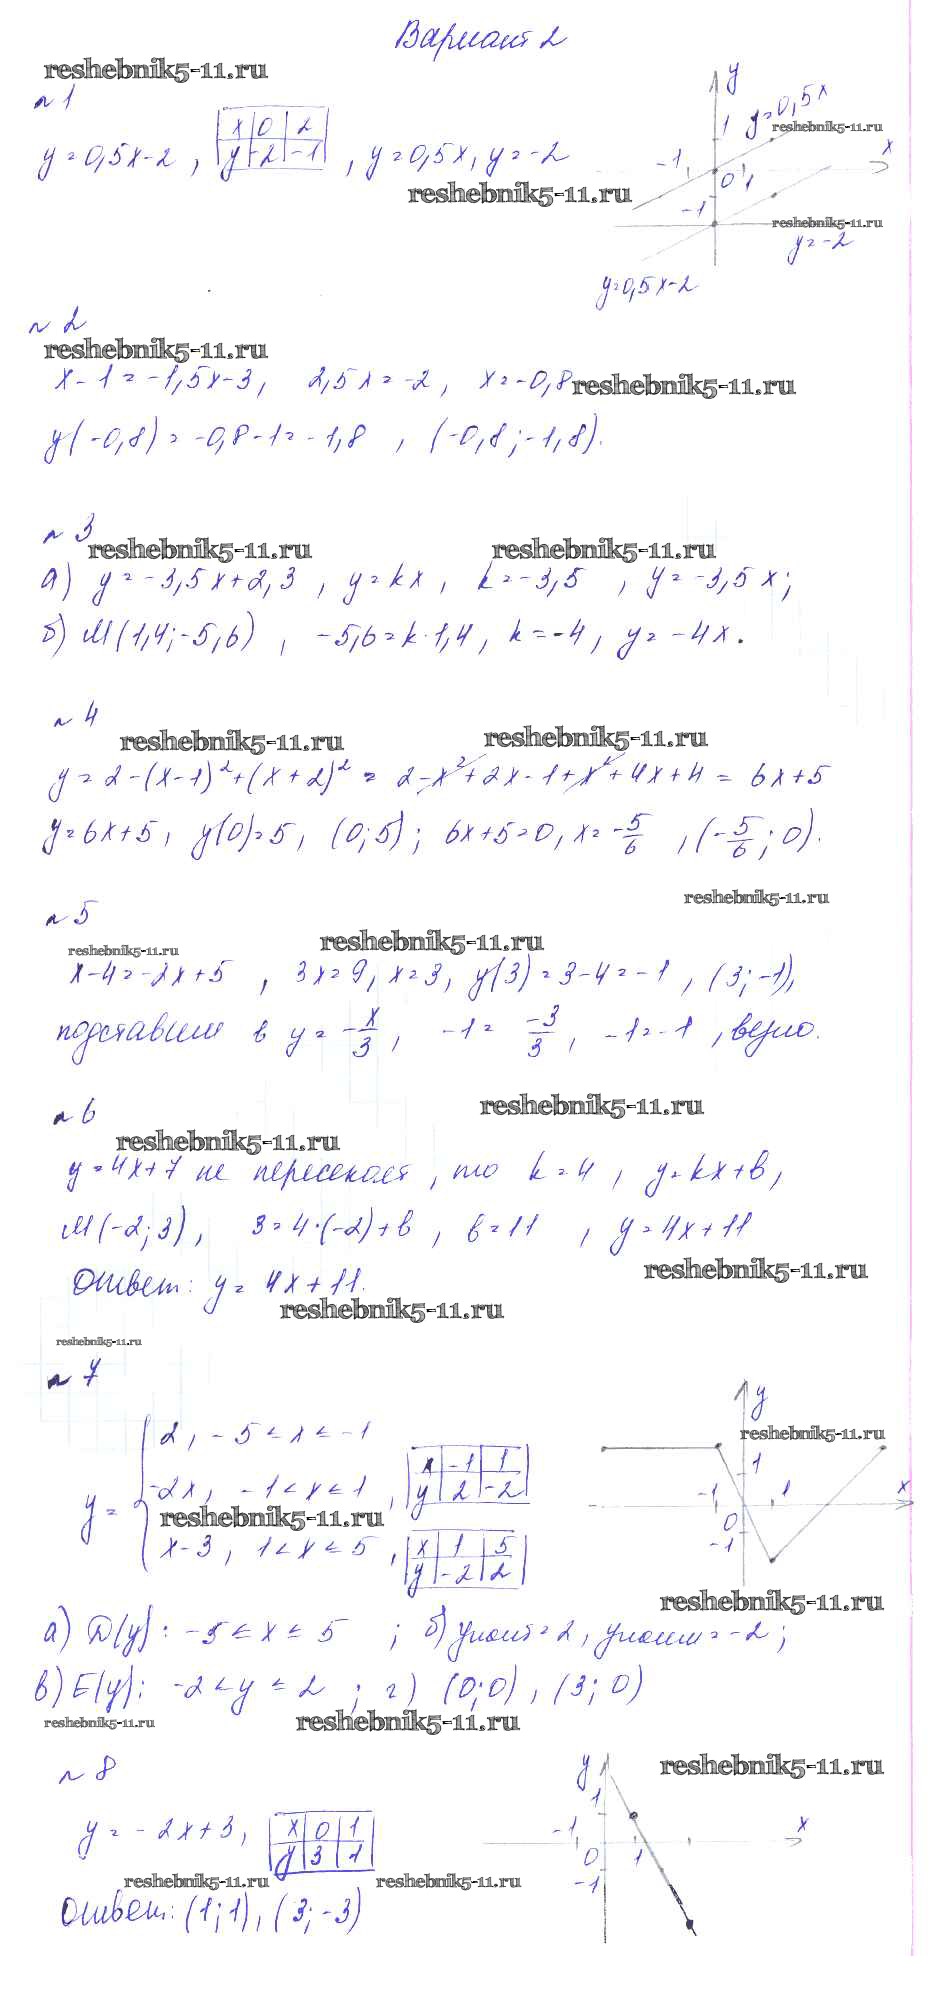 Вариант 2
reshebnik5-11.ru
№1
y=0,5x-2, x 0 2 y -2 -1, y=0,5x, y=-2
reshebnik5-11.ru
y
y=0,5x
reshebnik5-11.ru
1
-1
x
0 1
-1
reshebnik5-11.ru
y=-2
y=0,5x-2
№2
reshebnik5-11.ru
x-1=-1,5x-3, 2,5x=-2, x=-0,8
reshebnik5-11.ru
y(-0,8)=-0,8-1=-1,8, (-0,8;-1,8).
№3
reshebnik5-11.ru reshebnik5-11.ru
а) y=-3,5x+2,3, y=kx, k=-3,5, y=-3,5x;
б) M(1,4;-5,6), -5,6=k·1,4, k=-4, y=-4x.
№4
reshebnik5-11.ru reshebnik5-11.ru
y=2-(x-1)²+(x+2)²=2-x²+2x-1+x²+4x+4=6x+5
y=6x+5, y(0)=5, (0;5); 6x+5=0, x=-5/6, (-5/6;0).
reshebnik5-11.ru
№5
reshebnik5-11.ru reshebnik5-11.ru
x-4=-2x+5, 3x=9, x=3, y(3)=3-4=-1, (3;-1),
подставим в y=-x/3, -1=-3/3, -1=-1, верно.
№6
reshebnik5-11.ru
reshebnik5-11.ru
y=4x+7 не пересекает, то k=4, y=kx+b,
M(-2;3), 3=4·(-2)+b, b=11, y=4x+11
reshebnik5-11.ru
Ответ: y=4x+11.
reshebnik5-11.ru
reshebnik5-11.ru
№7
y= 2, -5≤x≤-1
-2x, -1<x≤1, x -1 1 y 2 -2
reshebnik5-11.ru
x-3, 1<x≤5, x 1 5 y -2 2
y
reshebnik5-11.ru
1
-1 1 x
0
-1
reshebnik5-11.ru
а) D(y): -5≤x≤5; б) yнаиб=2, yнаим=-2;
в) E(y): -2≤y≤2; г) (0;0), (3;0)
reshebnik5-11.ru reshebnik5-11.ru
№8
reshebnik5-11.ru
y=-2x+3, x 0 1 y 3 1
y
1
-1 x
0 1
-1
reshebnik5-11.ru reshebnik5-11.ru
Ответ: (1;1), (3;-3)